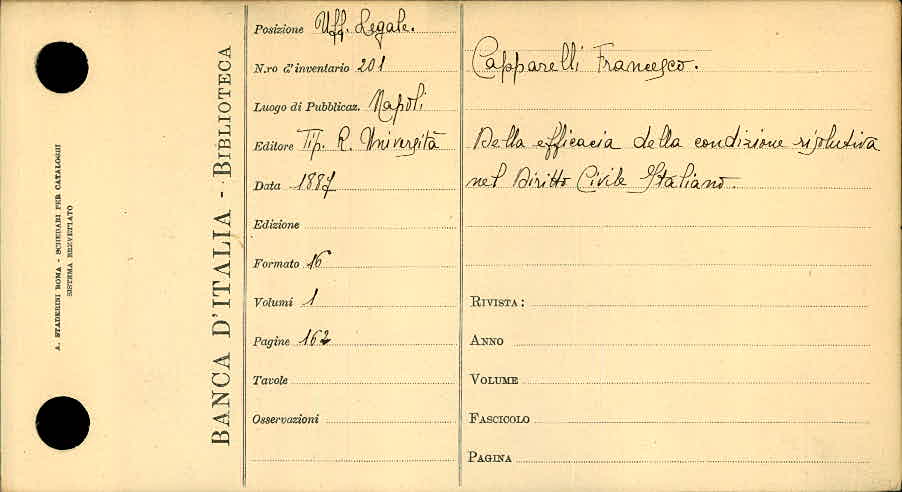 A. STADERINI ROMA - SCHEDARI PER CATALOGHI
SISTEMA BREVETTATO
BANCA D'ITALIA - BIBLIOTECA
Posizione Uff. Legale.
N.ro d'inventario 201
Luogo di Pubblicaz. Napoli
Editore Tip. R. Università
Data 1887
Edizione
Formato 16
Volumi 1
Pagine 162
Tavole
Osservazioni
Capparelli Francesco.
Della efficacia della condizione risolutiva
nel Diritto Civile Italiano.
RIVISTA:
ANNO
VOLUME
FASCICOLO
PAGINA